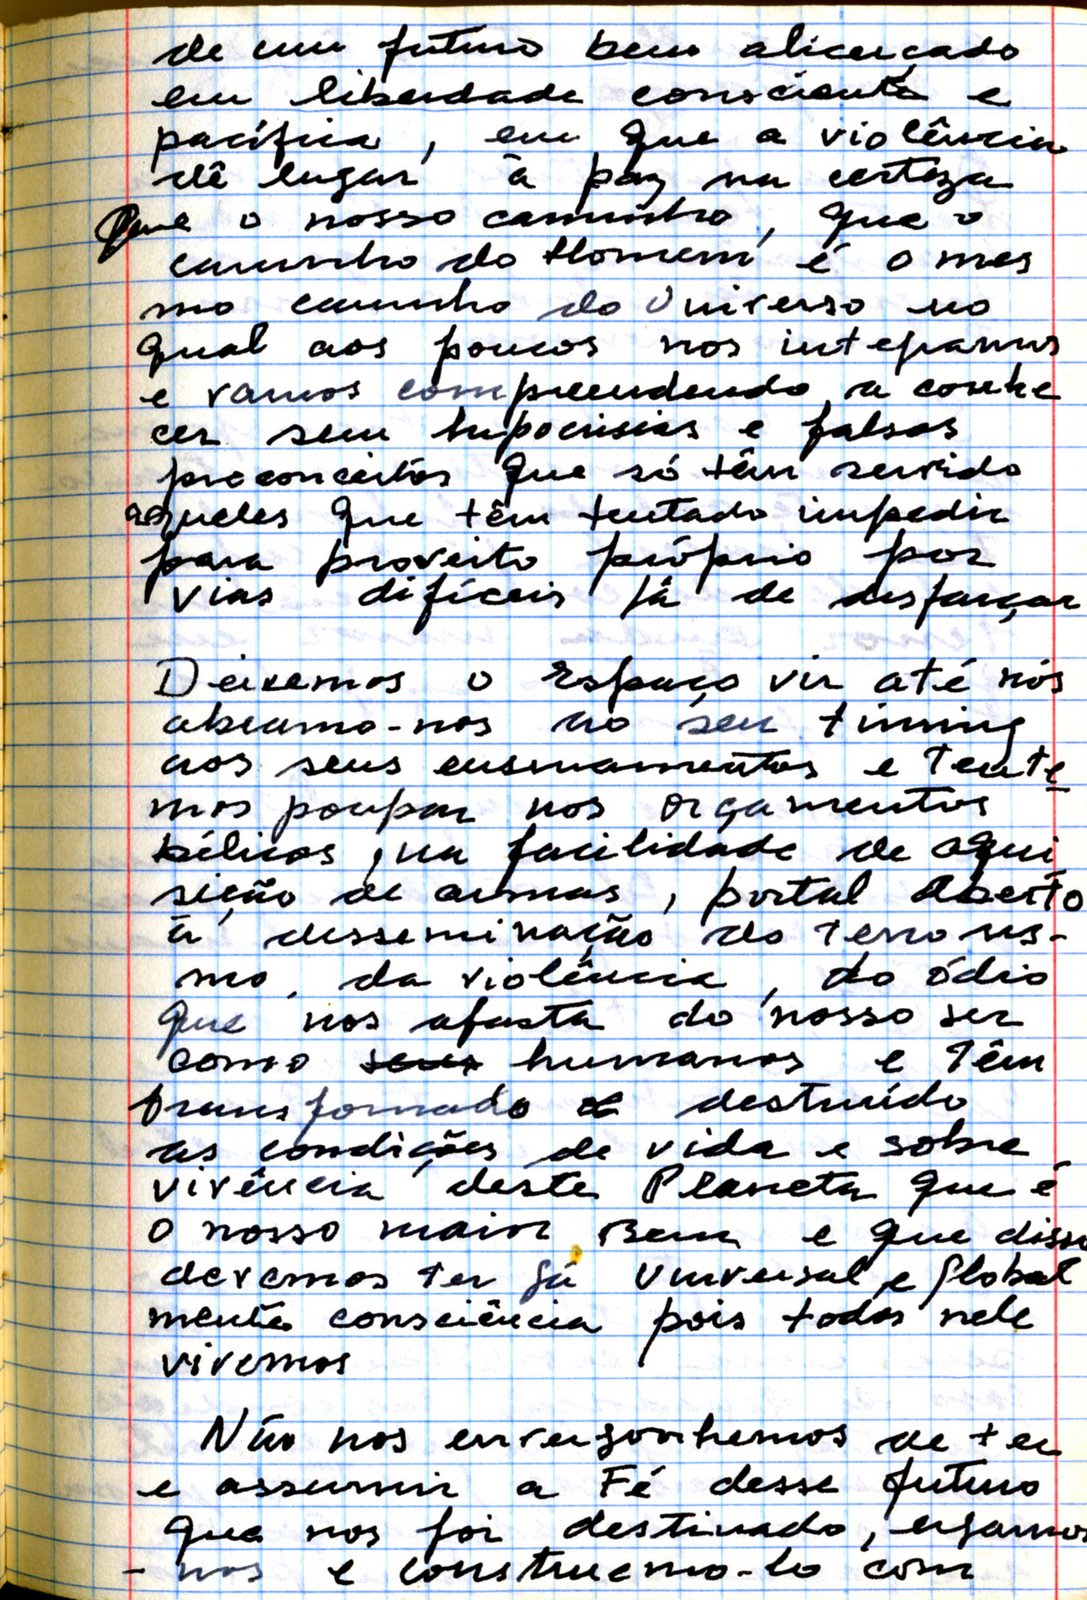 de um futuro bem alicerçado
em liberdade consciente e
pacífica, em que a violência
dê lugar à paz, na certeza
que o nosso caminho, que o
caminho do Homem é o mes
mo caminho do Universo no
qual aos poucos nos integramos
e vamos compreendendo, a conhe
cer sem hipocrisias e falsos
preconceitos que só têm servido
aqueles que têm tentado impedir
para proveito próprio por
vias difíceis já de desfarçar
Deixemos o Espaço vir até nós
abramo-nos ao seu timing
aos seus ensinamentos e tente
mos poupar nos orçamentos
bélicos, na facilidade de aqui
sição de armas, portal aberto
à disseminação do terroris-
mo, da violência, do ódio
que nos afasta do nosso ser
como humanos e têm
transformado e destruído
as condições de vida e sobre
vivência deste Planeta que é
o nosso maior Bem e que disso
devemos ter já Universal e global
mente consciência pois todos nele
vivemos
Não nos envergonhemos de ter
e assumir a Fé desse futuro
que nos foi destinado, ergamos
-nos e construemo-lo com